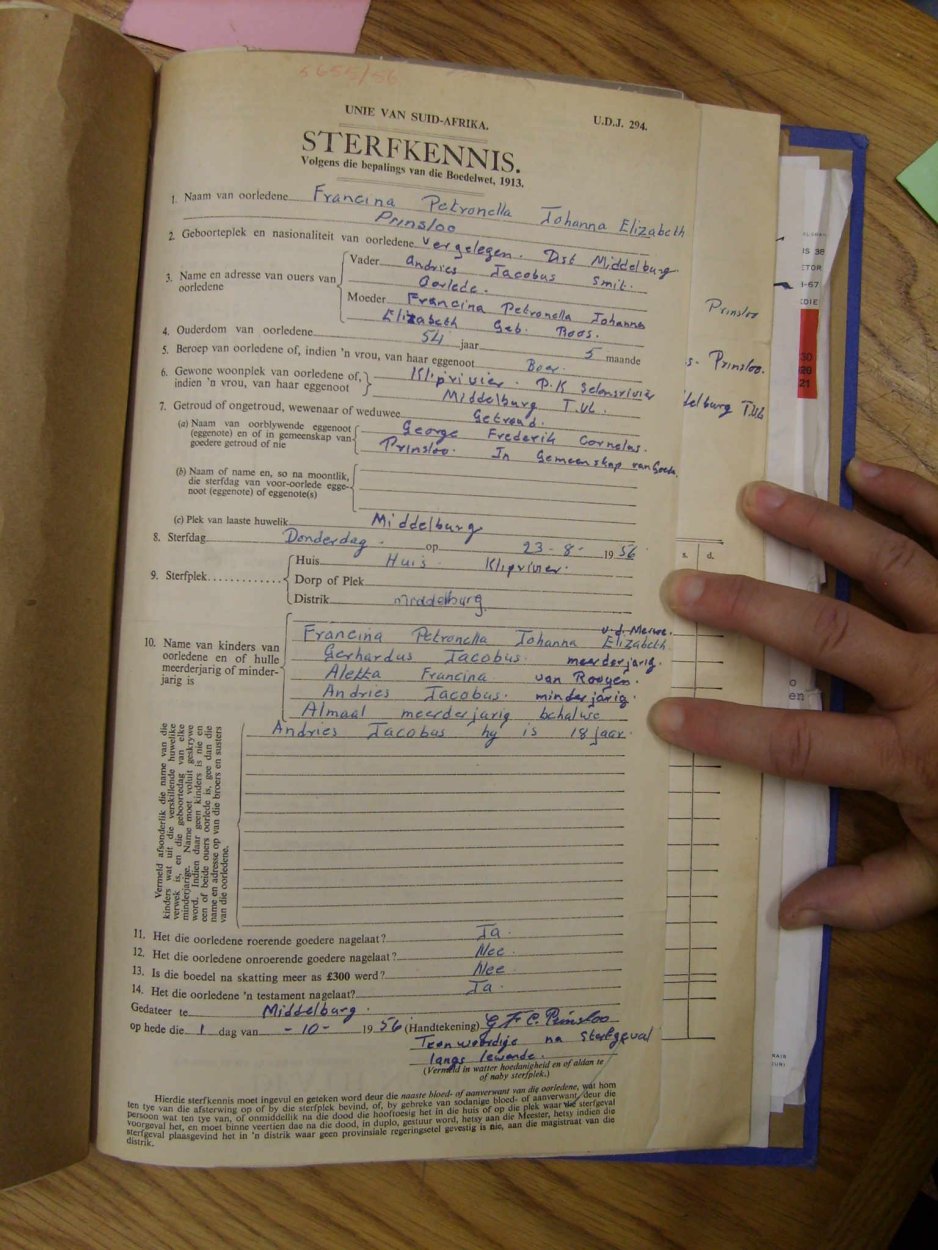 5655/56
UNIE VAN SUID-AFRIKA.
U.D.J. 294.
STERFKENNIS.
Volgens die bepalings van die Boedelwet, 1913.
1. Naam van oorledene Francina Petronella Johanna Elizabeth
Prinsloo
2. Geboorteplek en nasionaliteit van oorledene Vergelegen. Dist Middelburg
3. Name en adresse van ouers van oorledene
Vader Andries Jacobus Smit.
Oorlede.
Moeder Francina Petronella Johanna
Elizabeth Geb. Roos.
4. Ouderdom van oorledene 54 jaar 5 maande
5. Beroep van oorledene of, indien 'n vrou, van haar eggenoot Boer.
6. Gewone woonplek van oorledene of, indien 'n vrou, van haar eggenoot
Kliprivier. P.K Selonsrivier
Middelburg T.vl.
7. Getroud of ongetroud, wewenaar of weduwee Getroud.
(a) Naam van oorblywende eggenoot (eggenote) en of in gemeenskap van goedere getroud of nie
George Frederik Cornelus.
Prinsloo. In Gemeenskap van Goedr.
(b) Naam of name en, so na moontlik, die sterfdag van voor-oorlede eggenoot (eggenote) of eggenote(s)
(c) Plek van laaste huwelik Middelburg
8. Sterfdag Donderdag. op 23-8- 1956
9. Sterfplek
Huis Huis. Kliprivier.
Dorp of Plek
Distrik middelburg
10. Name van kinders van oorledene en of hulle meerderjarig of minderjarig is
v.d. Merwe.
Francina Petronella Johanna Elizabeth
Gerhardus Jacobus. meerderjarig.
Aletta Francina van Rooyen.
Andries Jacobus. minderjarig.
Almaal meerderjarig behalwe
Andries Jacobus hy is 18 jaar.
Vermeld afsonderlik die name van die
kinders wat uit die verskillende huwelike
verwek is, en die geboortedag van elke
minderjarige. Name moet voluit geskrywe
word. Indien daar geen kinders is nie en
een of beide ouers oorlede is, gee dan die
name en adresse op van die broers en susters
van die oorledene.
11. Het die oorledene roerende goedere nagelaat? Ja.
12. Het die oorledene onroerende goedere nagelaat? Nee.
13. Is die boedel na skatting meer as £300 werd? Nee.
14. Het die oorledene 'n testament nagelaat? Ja.
Gedateer te Middelburg.
op hede die 1 dag van -10- 1956 (Handtekening) G F C Prinsloo
Teenwoordige na sterfgeval
langs lewende.
(Vermeld in watter hoedanigheid en of aldan te
of naby sterfplek.)
Hierdie sterfkennis moet ingevul en geteken word deur die naaste bloed- of aanverwant van die oorledene, wat hom
ten tye van die afsterwing op of by die sterfplek bevind, of, by gebreke van sodanige bloed- of aanverwant, deur die
persoon wat ten tye van, of onmiddellik na die dood die hooftoesig het in die huis of op die plek waar die sterfgeval
voorgeval het, en moet binne veertien dae na die dood, in duplo, gestuur word, hetsy aan die Meester, hetsy indien die
sterfgeval plaasgevind het in 'n distrik waar geen provinsiale regeringsetel gevestig is nie, aan die magistraat van die
distrik.
Prinsloo
s- Prinsloo.
delburg T.vl
s. d.
o
en